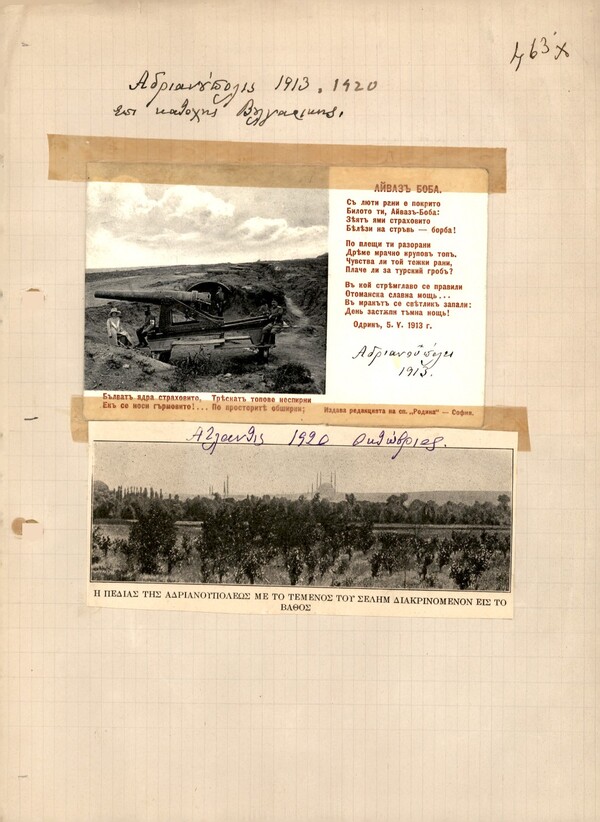 463 X
Αδριανούπολις 1913 . 1920
επι κατοχης Βουλγαρικης.
АЙВАЗЪ БОБА.
Съ люти рани е покрито
Билото ти, Айвазъ-Боба:
Зѣятъ ями страховито
Бѣлѣзи на стръвь — борба!
По плещи ти разорани
Дрѣме мрачно круповъ топъ.
Чувства ли той тежки рани,
Плаче ли за турский гробъ?
Въ кой стрѣмглаво се правили
Отоманска славна мощь...
Въ мракътъ се свѣтлик запали:
День застѫпи тъмна нощь!
Одринъ, 5. V. 1913 г.
Αδριανούπολις
1913.
Бълватъ ядра страховито, Трѣскатъ топове неспирни
Екъ се носи гърмовито!... По просторитѣ обширни;
Издава редакцията на сп. „Родина" — София.
1920 Οκτώβριος.
Η ΠΕΔΙΑΣ ΤΗΣ ΑΔΡΙΑΝΟΥΠΟΛΕΩΣ ΜΕ ΤΟ ΤΕΜΕΝΟΣ ΤΟΥ ΣΕΛΗΜ ΔΙΑΚΡΙΝΟΜΕΝΟΝ ΕΙΣ ΤΟ
ΒΑΘΟΣ